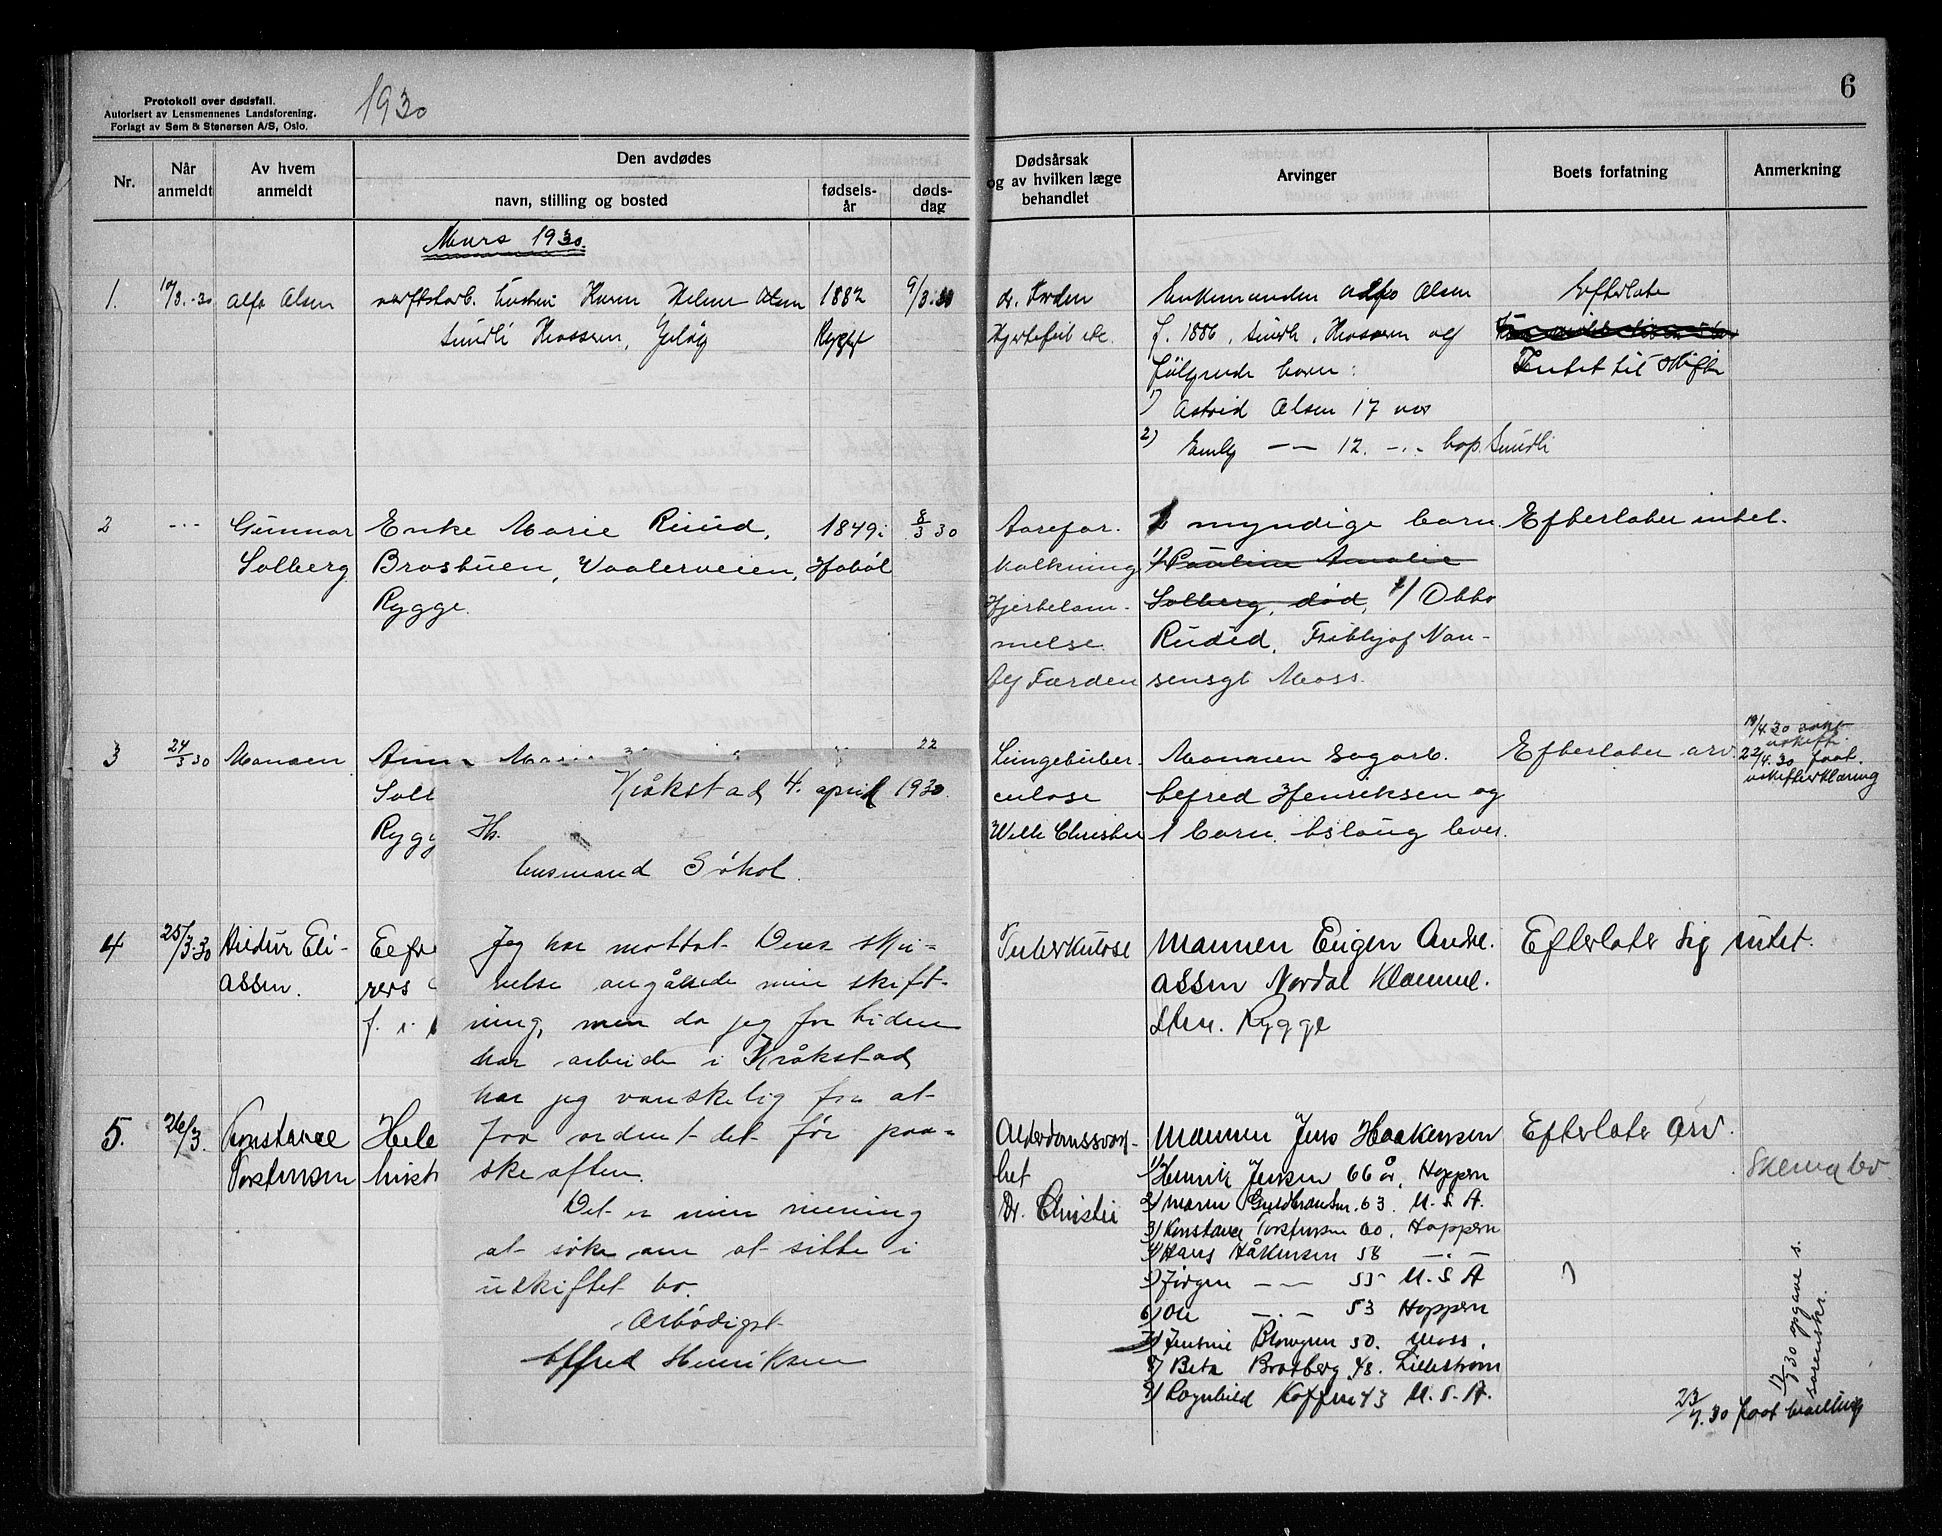 Protokoll over dødsfall.
Autorisert av Lensmennenes Landsforening.
Forlagt av Sem & Stenersen A/S, Oslo.
1930
6
Nr.
Når anmeldt
Av hvem anmeldt
Den avdødes
navn, stilling og bosted
fødsels-år
døds-dag
Dødsårsak og av hvilken læge behandlet
Arvinger
Boets forfatning
Anmerkning
Mars 1930.
1. 10/3.-30 Alfo Olsen
Helene Olsen 1882 9/3.30
Rygge
dr. Færden
Hjertefeil
Enkemanden Alfo Olsen
f. 1886, og
følgende barn:
1) Astrid Olsen 17 aar
2) Emly —— 12. -..- bop.
Efterlate
Intet til skifte
2 -..- Gunnar
Solberg
Enke Marie Ruud, 1849. 8/3 30
Brostuen, Vaalerveien, Hobøl
Rygge.
Aarefor.
kalkning
Hjertelam-
melse.
Af Færden
1 myndige barn
1/ Pauline Amalie
Solberg, død, 1/ Otto
Ruud, Fribtjof Nan-
sensgt Moss.
Efterlater intet.
3 24/3 30 Monsen
Anna Marie
Solb
Rygg
22
Lungetuber-
culose
Wille Christie
Mannen Sagarb.
Effred Henriksen og
1 barn. Aslaug lever.
Efterlater arv.
19/4.30
22/4.30 faat
uskifterklæring
4 25/3.30 Eli-
assen.
Eefre
rers
f. i.
Tuberkulose
Mannen Eugen Andre.
assen Nordal
Rygge
Efterlater sig intet.
5. 26/3. Konstance
Torstensen
Hele
Alderdomssvak-
het
Dr. Christie
Mannen Jens Haakensen
1) Henrik Jensen 66 år, Hoppern
2) Maren Guldbransen. 63. U. S. A.
3) Konstance Torstensen 60. Hoppern
4) Hans Håkensen 58 —.—
5) Jørgen —— 55 U. S. A
6) Ole —.— 53 Hoppern
7) Jentine Blomgren 50. Moss.
8) Beta Brotberg 48. Lillestrøm
9) Ragnhild 43 U. S. A.
Efterlater arv.
Skema lev
12/7 30 opgave s.
sorenskr.
23/7.30 faat
Kråkstad 4. april 1930.
Hr.
Lensmand Søhol.
Jeg har mottat Deres skri-
velse angående min skift-
ning, men da jeg for tiden
har arbeide i Kråkstad
har jeg vanskelig for at
faa ordent det før paa-
skeaften.
Det er min mening
at søke om at sitte i
uskiftet bo.
Ærbødigst
Effred Henriksen